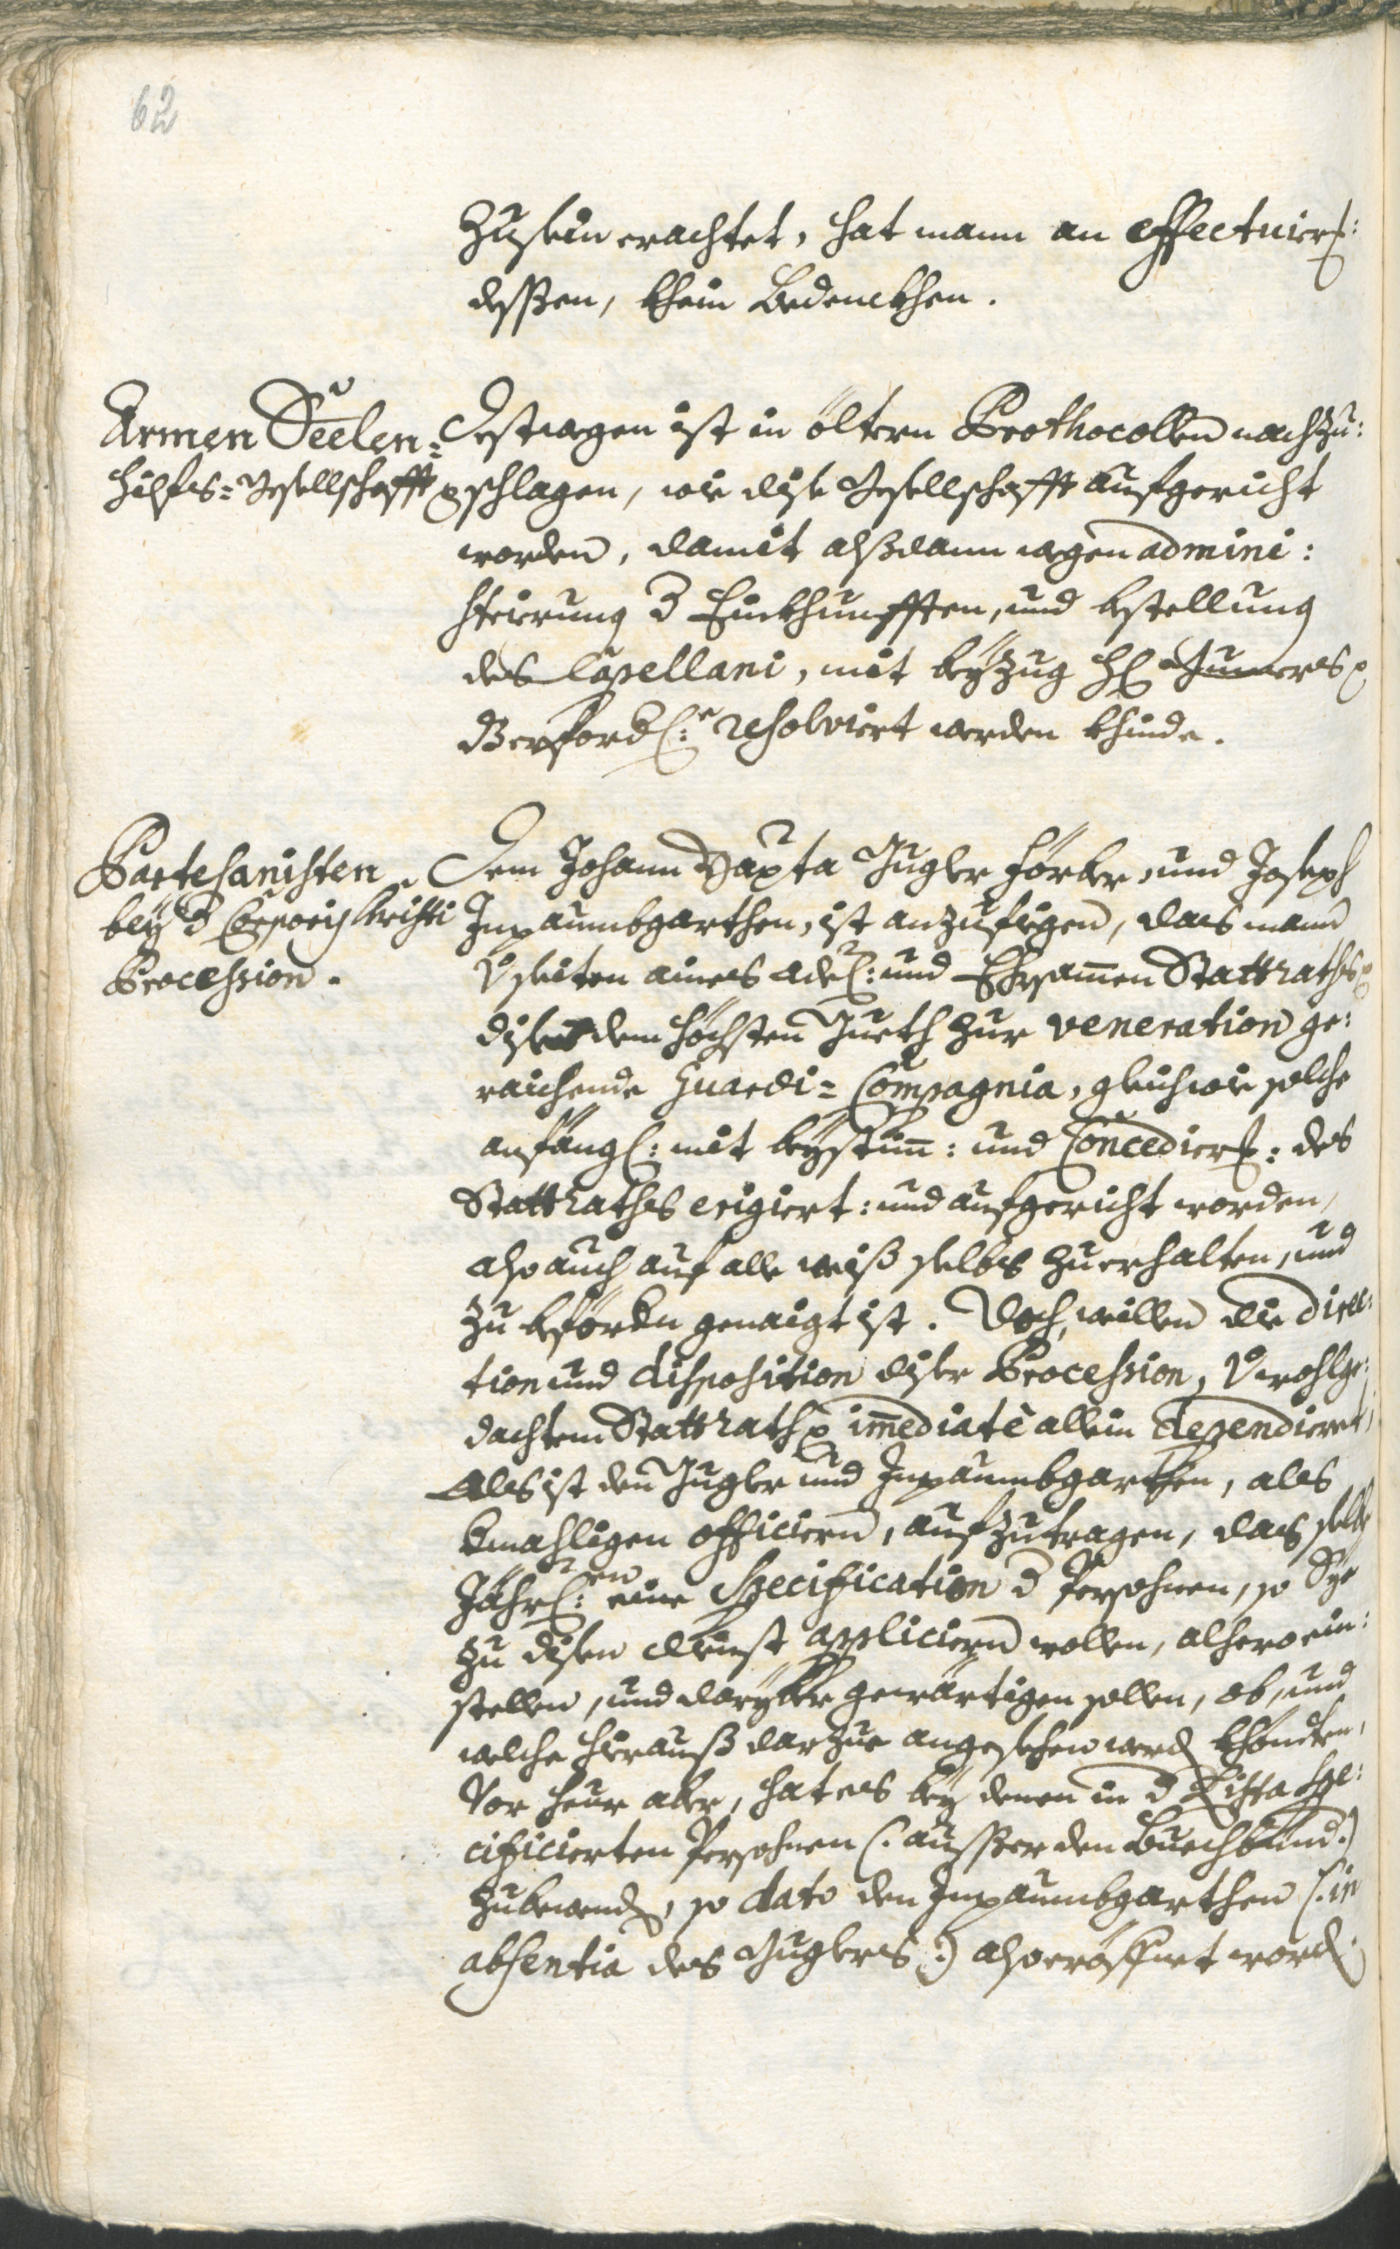 62
zu sein erachtet, hat mann an effectuier:
dessen, khein bedenckhen.
Armen Seelen=
hilfs=Gesellschafft
Destwegen ist in öltern Prothocollen nachzu:
schlagen, wie dise Gesellschafft aufgericht
worden, damit alßdann wegen admini:
strierung d Einkhunfften, und bstellung
des Capellani, mit beÿzug H
resolviert werden khinde.
Partesanisten
beÿ d Corporis Christi
Procession.
Dem Johann Bapta Gugler Förber, und Joseph
Inpäumbgarthen, ist anzufiegen, das mann
V seiten aines Adel: und Ehrsamen Stattraths
dise dem höchsten Gueth zur veneration ge:
raichende Guardi=Compagnia, gleichwie solche
anfängl: mit beÿstim: und Concedier: des
Stattraths erigiert: und aufgericht worden,
also auch auf alle weiß selbs zu erhalten, und
zu befördern genaigt ist. Doch, weillen die direc:
tion und disposition diser Procession, V wohlge:
dachtem Stattrath imediatè allein dependieret,
Als ist den Gugler und Inpäumbgarthen, als
dermahligen officiern, aufzutragen, das selbe
Jährl: eine Specification d Persohnen, so Sye
zu disen dienst applicieren wollen, alhero ein:
stellen, und darÿber gewärtigen sollen, ob, und
welche hierauß darzue angesehen werd khöndten,
Vor heur aber, hat es beÿ denen in d Lista spe:
cificierten Persohnen (: ausser den Buechbind:)
zubewend, so dato den Inpäumbgarthen (: in
absentia des Guglers :) also eröffnet word.